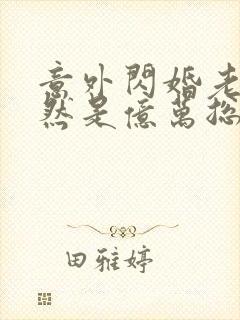 意外閃婚老
然是億萬總
田雅婷